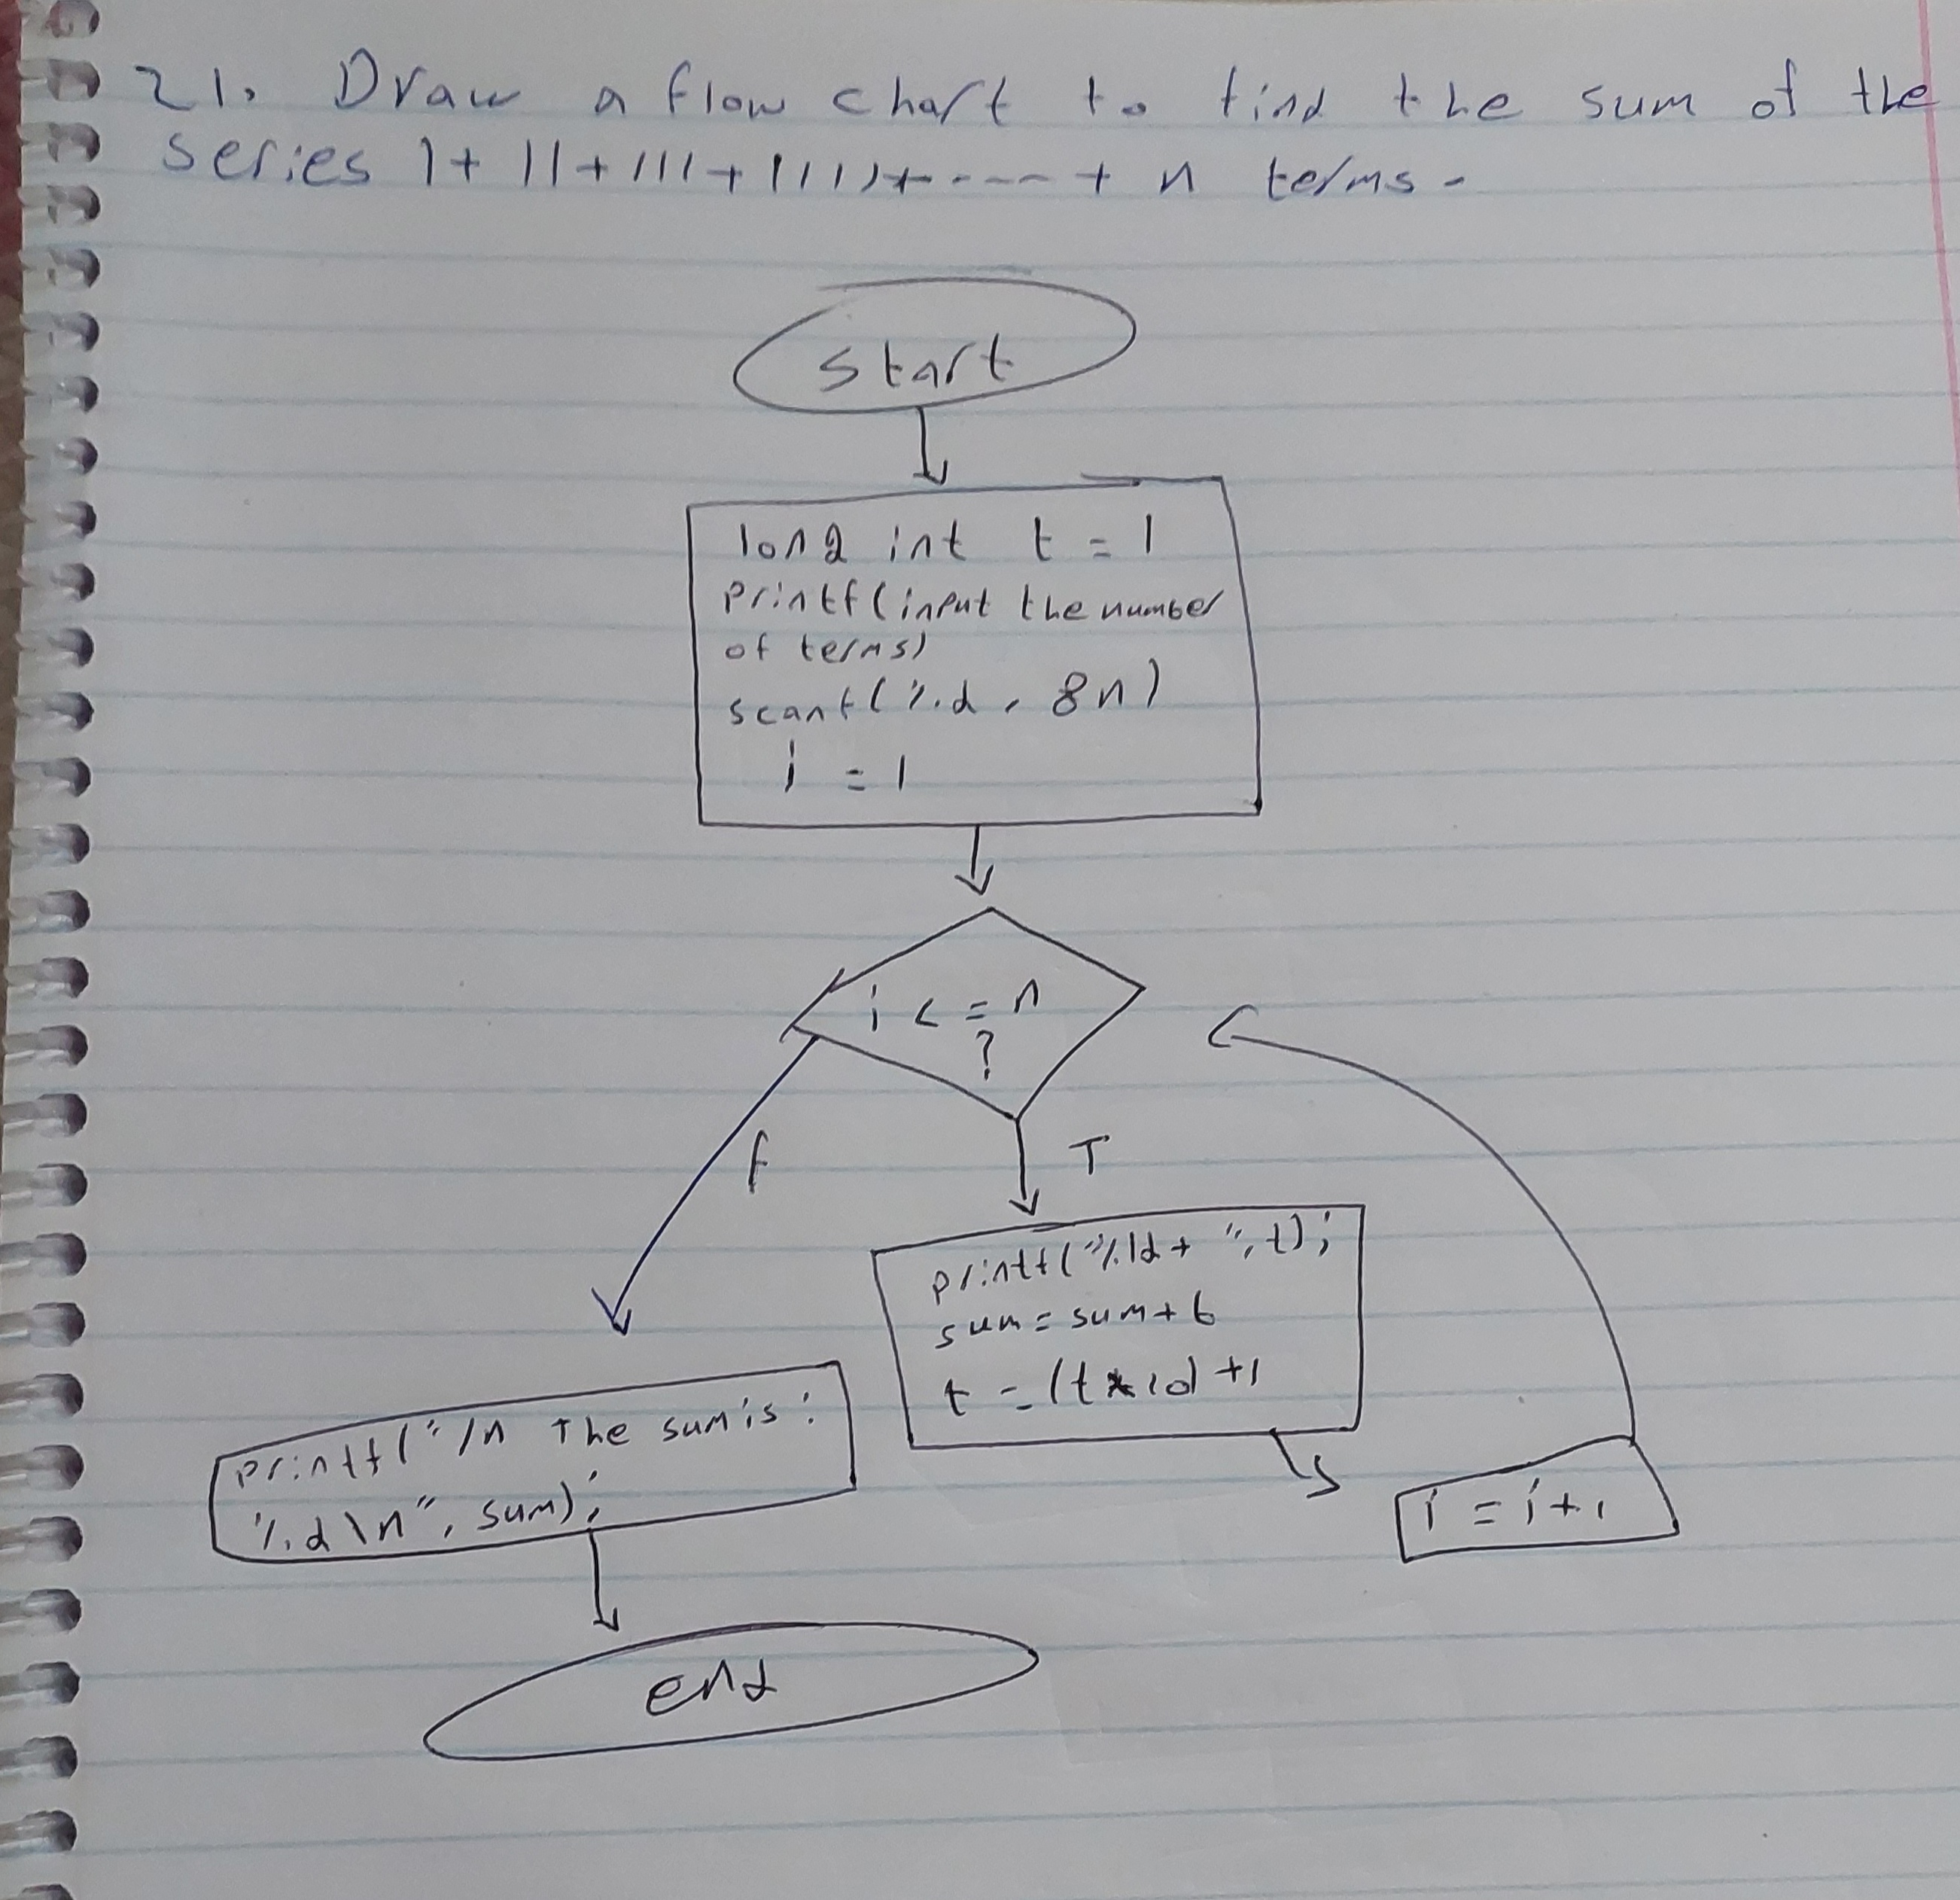 21. Draw a flow chart to find the sum of the
series 1+ 11+111+1111+----+ n terms.
start
long int t = 1
printf(input the number
of terms)
scanf(%d, &n)
i = 1
i <= n
?
f
T
printf("%ld+ ", t);
sum = sum + t
t = (t*10)+1
printf("/n The sum is :
%d\n", sum);
i = i+1
end